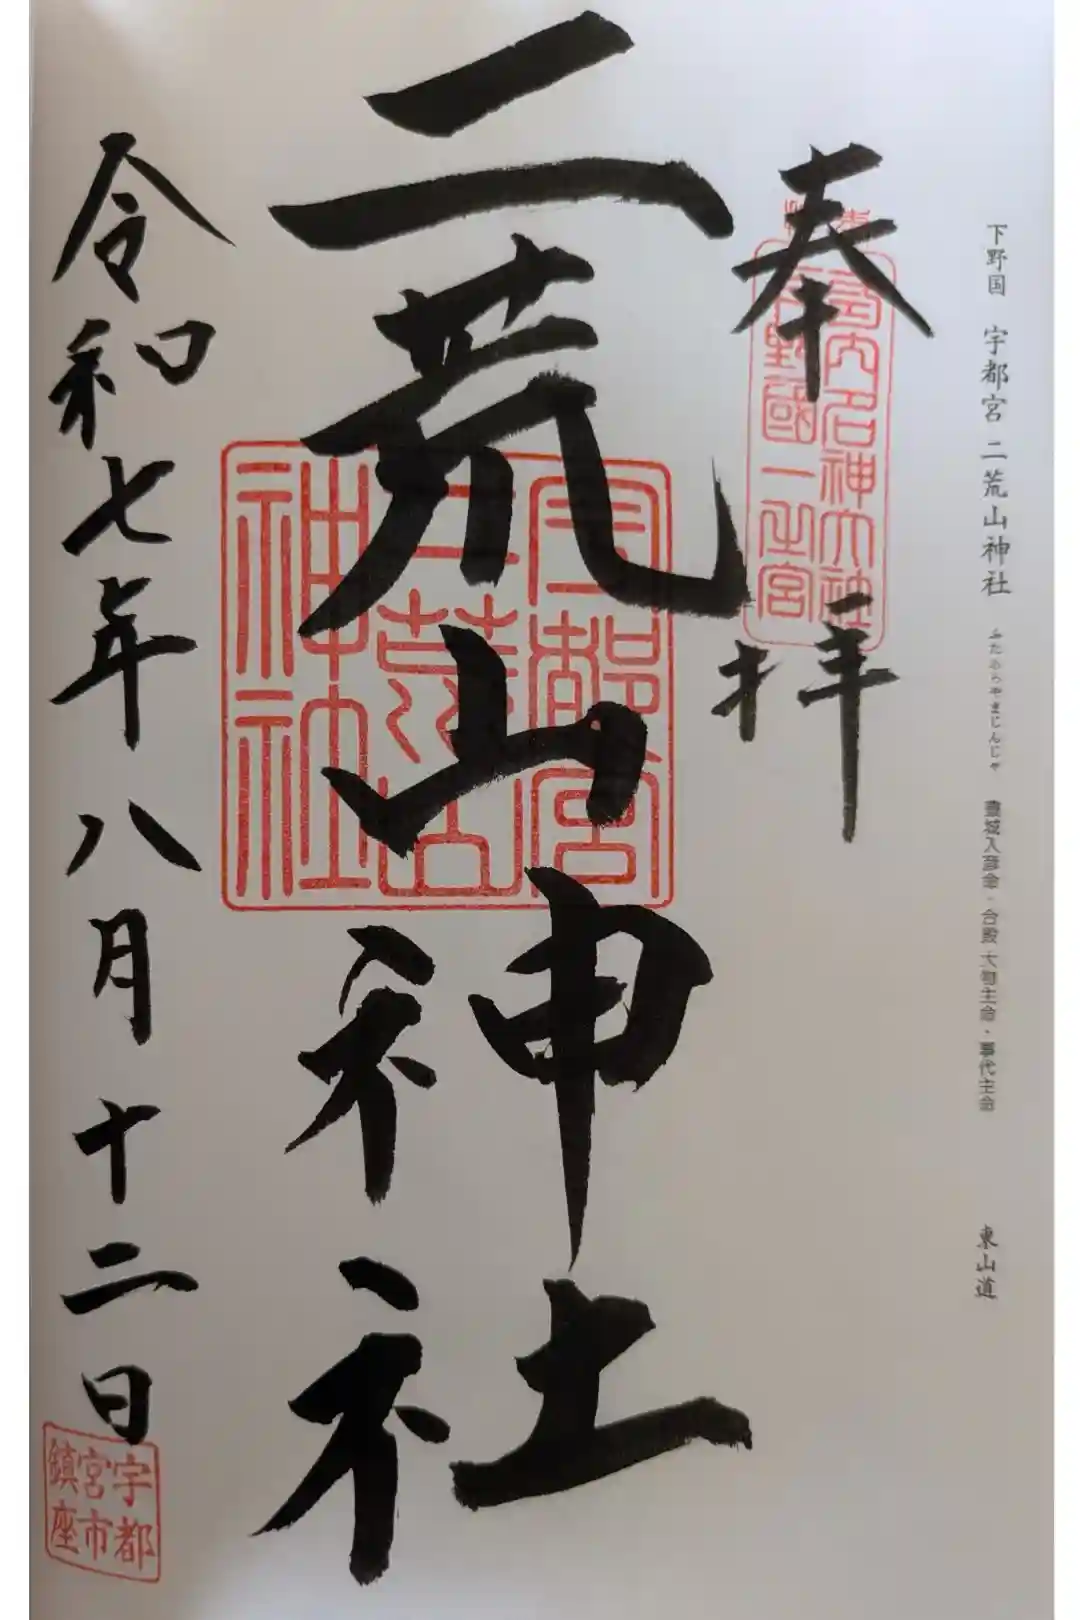 下野国 宇都宮 二荒山神社 ふたあらやまじんじゃ 豊城入彦命・合殿 大物主命・事代主命 東山道
奉拝
名神大社
下野國一之宮
二荒山神社
宇都宮
二荒山
神社
令和七年八月十二日
宇都
宮市
鎮座